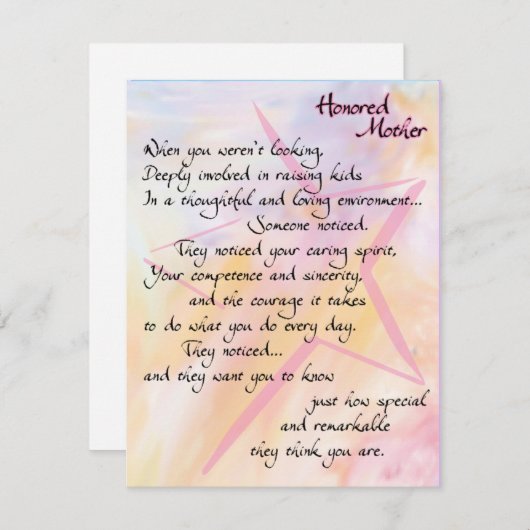 Honored
Mother
When you weren't looking,
Deeply involved in raising kids
In a thoughtful and loving environment...
Someone noticed.
They noticed your caring spirit,
Your competence and sincerity,
and the courage it takes
to do what you do every day.
They noticed...
and they want you to know
just how special
and remarkable
they think you are.